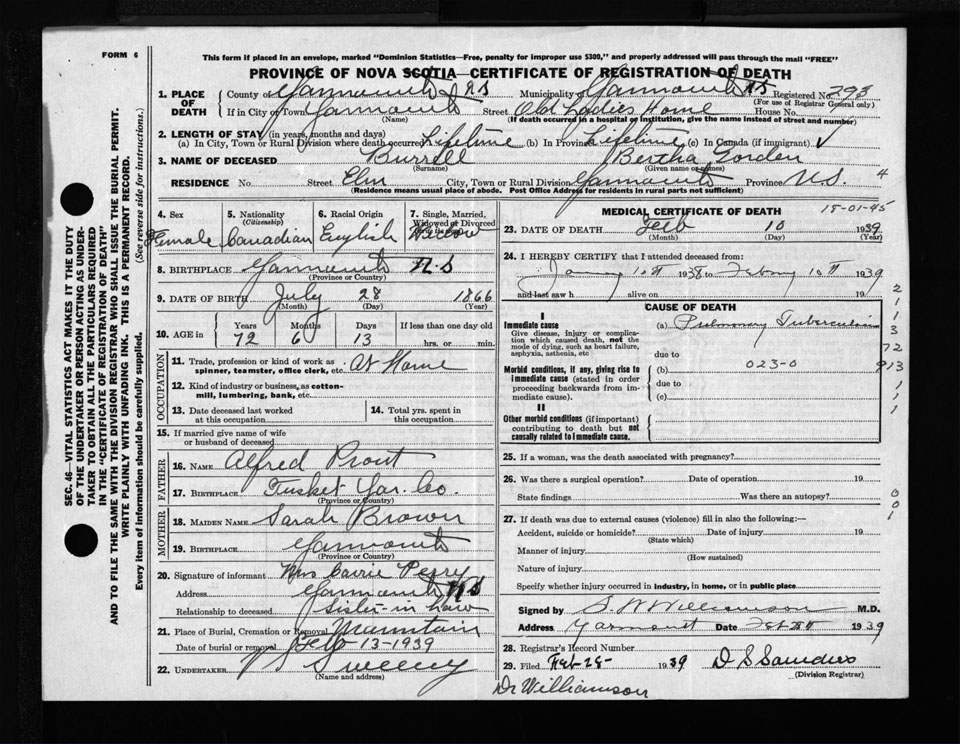 FORM 6
This form if placed in an envelope, marked "Dominion Statistics—Free, penalty for improper use $300," and properly addressed will pass through the mail "FREE"
PROVINCE OF NOVA SCOTIA—CERTIFICATE OF REGISTRATION OF DEATH
1. PLACE OF DEATH County of Yarmouth N S Municipality of Yarmouth N S Registered No. 293
(For use of Registrar General only)
If in City or Town Yarmouth Street Old Ladies Home House No.
(Name) (If death occurred in a hospital or institution, give the name instead of street and number)
2. LENGTH OF STAY (in years, months and days)
(a) In City, Town or Rural Division where death occurred Lifetime (b) In Province Lifetime (c) In Canada (if immigrant) ✓
3. NAME OF DECEASED Burrell Bertha Gorden
(Surname) (Given name or names)
RESIDENCE No. Street Elm City, Town or Rural Division Yarmouth Province N.S. 4
(Residence means usual place of abode. Post Office Address for residents in rural parts not sufficient)
4. Sex 5. Nationality (Citizenship) 6. Racial Origin 7. Single, Married, Widowed or Divorced
Female Canadian English Widow
8. BIRTHPLACE Yarmouth N.S
(Province or Country)
9. DATE OF BIRTH July 28 1866
(Month) (Day) (Year)
10. AGE in Years Months Days If less than one day old
72 6 13 hrs. or min.
OCCUPATION
11. Trade, profession or kind of work as spinner, teamster, office clerk, etc. At Home
12. Kind of industry or business, as cotton-mill, lumbering, bank, etc.
13. Date deceased last worked at this occupation
14. Total yrs. spent in this occupation
15. If married give name of wife or husband of deceased
FATHER
16. NAME Alfred Prout
17. BIRTHPLACE Tusket Yar. Co.
(Province or Country)
MOTHER
18. MAIDEN NAME Sarah Brown
19. BIRTHPLACE Yarmouth
(Province or Country)
20. Signature of informant Mrs Carrie Perry
Address Yarmouth N S
Relationship to deceased Sister-in-law
21. Place of Burial, Cremation or Removal Mountain
Date of burial or removal Feb-13-1939
22. UNDERTAKER V S Sweeny
(Name and address)
MEDICAL CERTIFICATE OF DEATH 15-01-45
23. DATE OF DEATH Feb 10 1939
(Month) (Day) (Year)
24. I HEREBY CERTIFY that I attended deceased from:
1938 to 1939
and last saw h alive on 19
CAUSE OF DEATH
I
Immediate cause
Give disease, injury or complication which caused death, not the mode of dying, such as heart failure, asphyxia, asthenia, etc
(a) Pulmonary Tuberculosis
due to
Morbid conditions, if any, giving rise to immediate cause (stated in order proceeding backwards from immediate cause).
(b) 023-0
due to
(c)
II
Other morbid conditions (if important) contributing to death but not causally related to immediate cause.
2
1
1
3
72
913
1
1
1
25. If a woman, was the death associated with pregnancy?
26. Was there a surgical operation? Date of operation 19
State findings Was there an autopsy?
0
0
1
27. If death was due to external causes (violence) fill in also the following:—
Accident, suicide or homicide? Date of injury 19
(State which)
Manner of injury
(How sustained)
Nature of injury
Specify whether injury occurred in industry, in home, or in public place
Signed by S. W Williamson M.D.
Address Yarmouth Date 1939
28. Registrar's Record Number
29. Filed Feb-28- 1939 D S Saunders
(Division Registrar)
Dr Williamson
SEC. 46—VITAL STATISTICS ACT MAKES IT THE DUTY
OF THE UNDERTAKER OR PERSON ACTING AS UNDER-
TAKER TO OBTAIN ALL THE PARTICULARS REQUIRED
IN THE "CERTIFICATE OF REGISTRATION OF DEATH"
AND TO FILE THE SAME WITH THE DIVISION REGISTRAR WHO SHALL ISSUE THE BURIAL PERMIT.
WRITE PLAINLY WITH UNFADING INK. THIS IS A PERMANENT RECORD.
Every item of information should be carefully supplied. (See reverse side for instructions.)